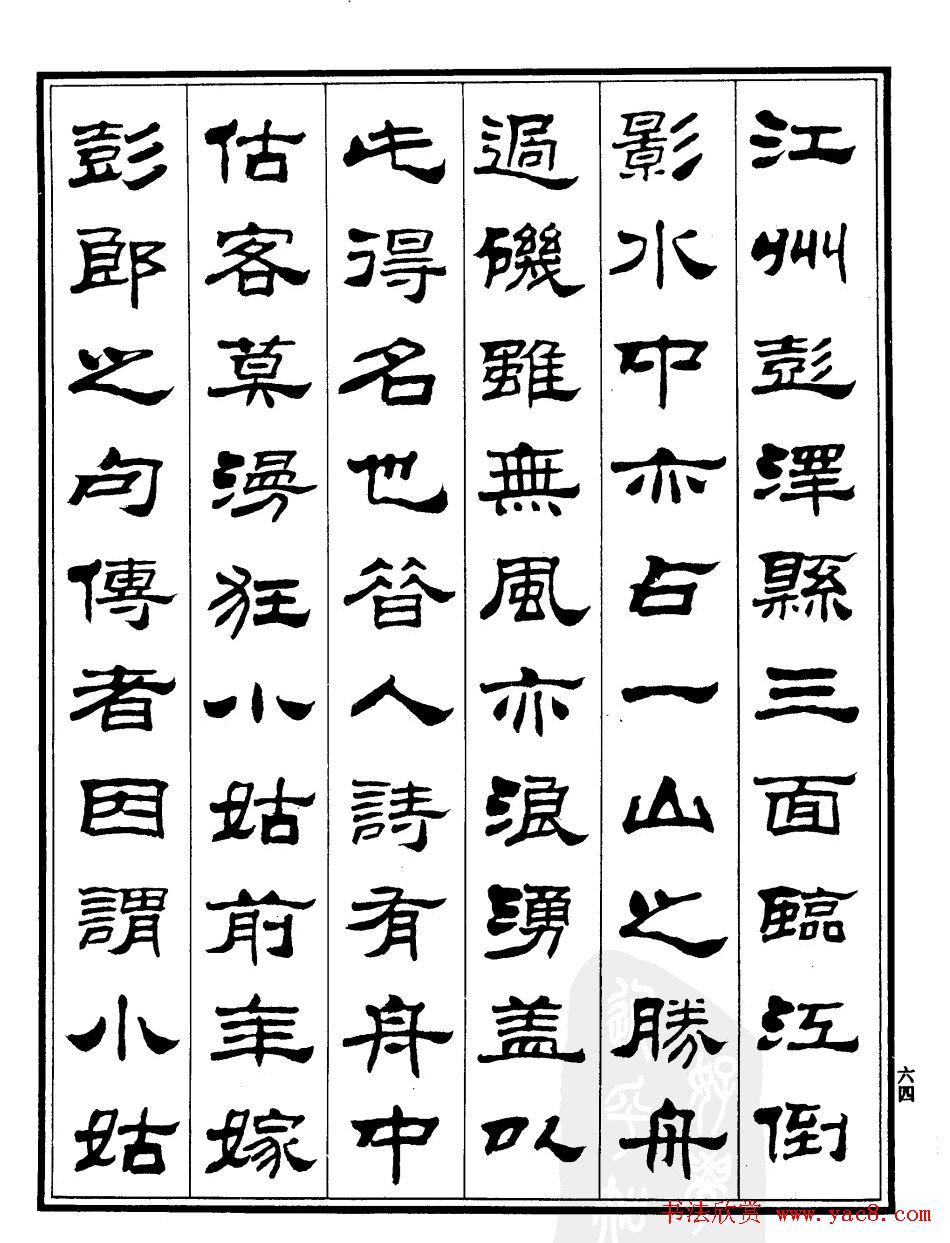 江州彭澤縣三面臨江倒
影水中亦占一山之勝舟
過磯雖無風亦浪湧盖以
此得名也昔人詩有舟中
估客莫漫狂小姑前年嫁
彭郎之句傳者因謂小姑
六四
书法欣赏 www.yac8.com